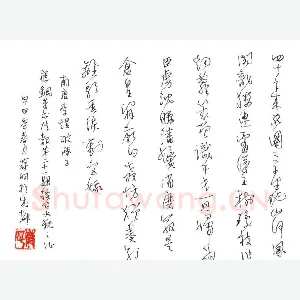 四十年來家國三千里地山河鳳
閣龍樓連霄漢玉樹瓊枝作
煙蘿幾曾識干戈一旦歸為
臣虜沈腰潘鬢消磨最是
倉皇辭廟日教坊猶奏別
離歌垂淚對宮娥
南唐李煜破陣子
Shufawang.cn